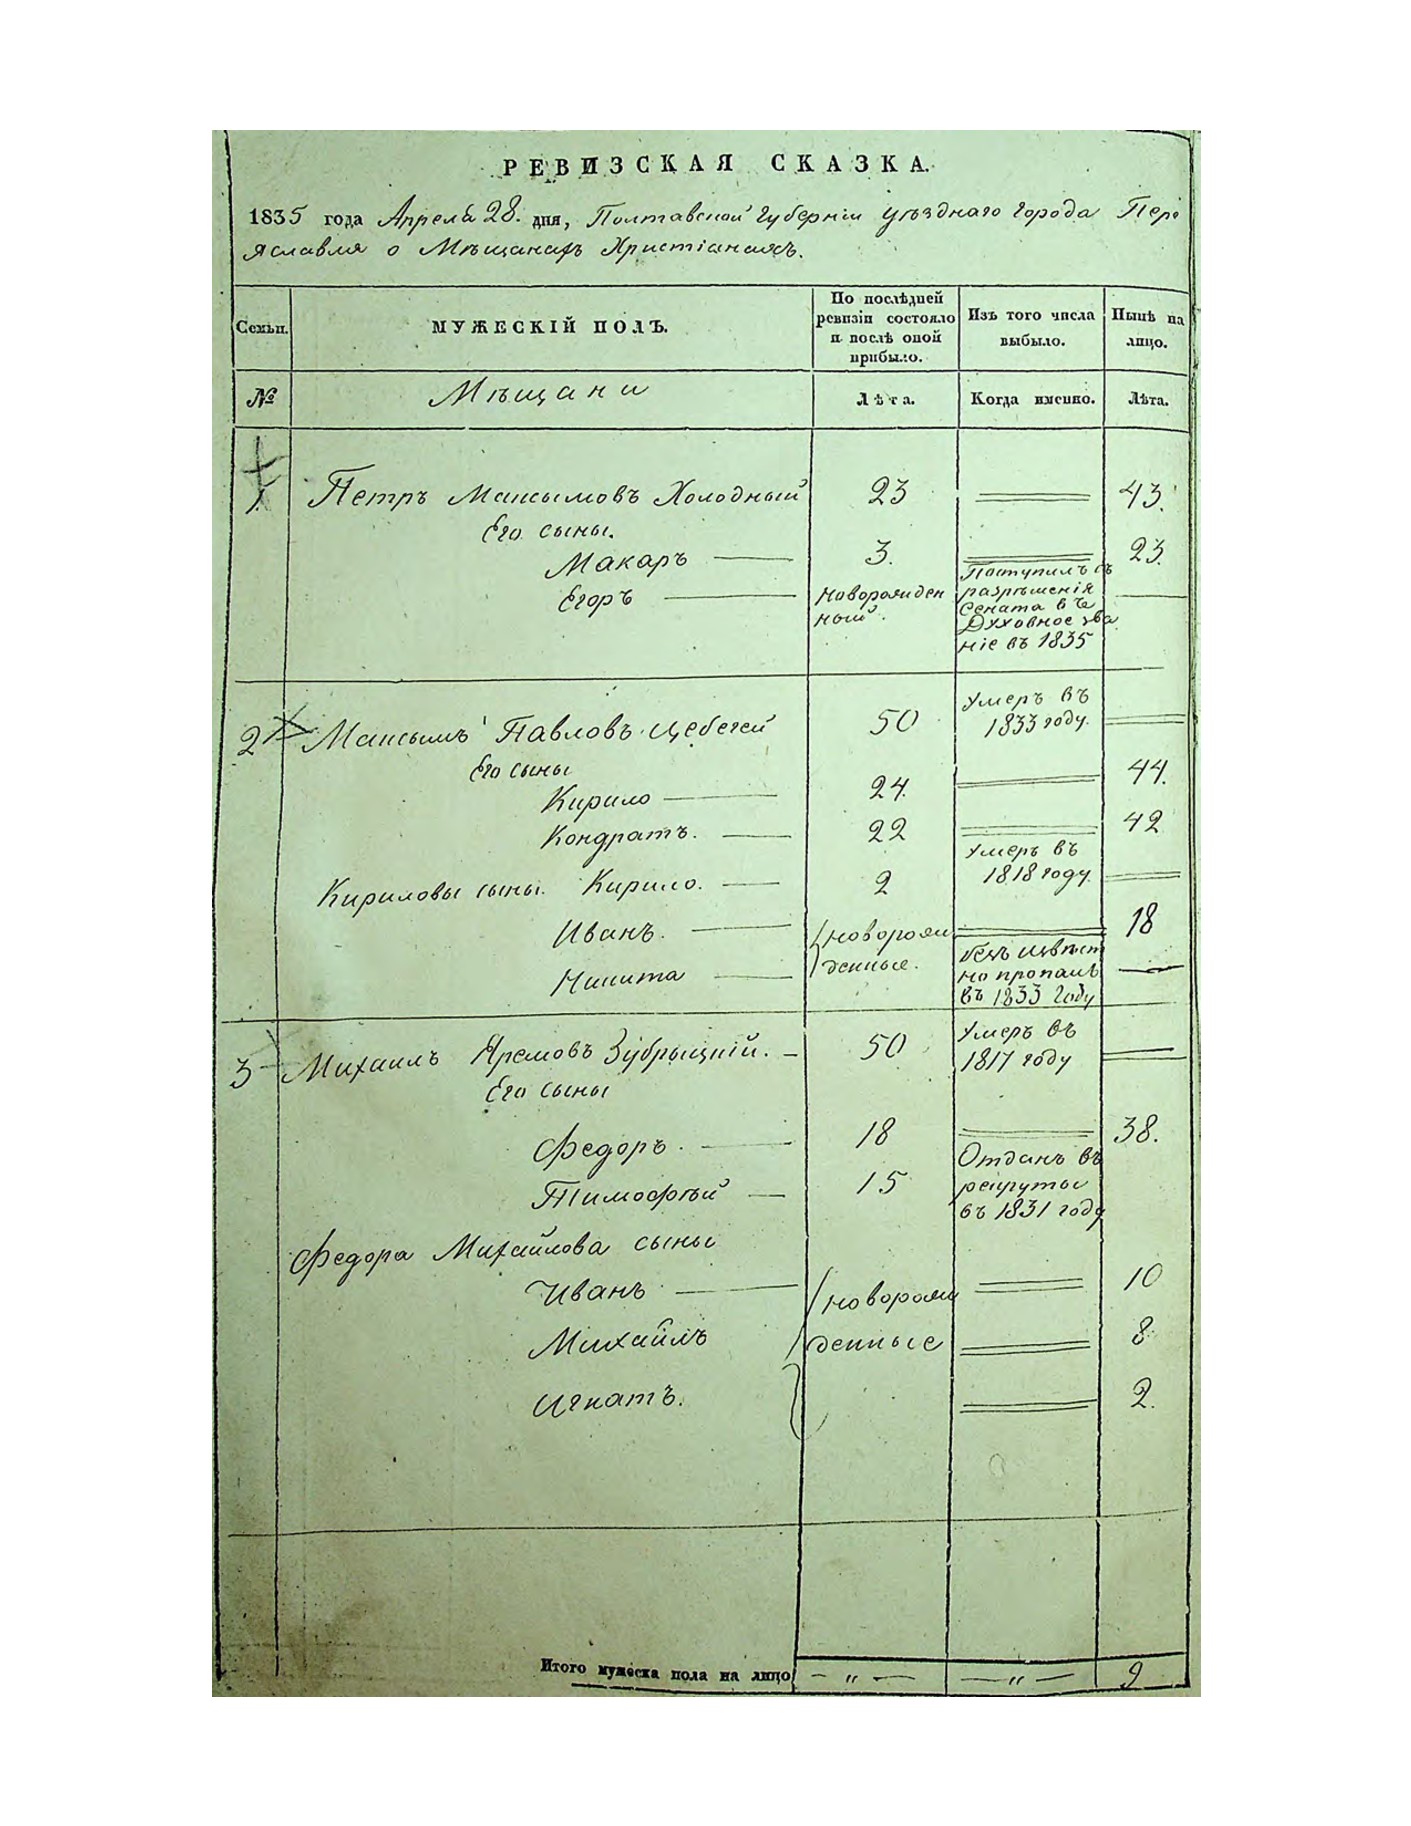 РЕВИЗСКАЯ СКАЗКА.
1835 года Апреля 28. дня, Полтавской Губерніи уѣзднаго города Пере
яславля о Мѣщанахъ Христіанахъ.
Семьи. МУЖЕСКІЙ ПОЛЪ. По послѣдней ревизіи состояло и послѣ оной прибыло. Изъ того числа выбыло. Нынѣ на лицо.
№ Мѣщани Лѣта. Когда именно. Лѣта.
1. Петръ Максымовъ Холодный 23 43.
Его сыны.
Макаръ 3. 23.
Егоръ Новорожден
ный. Поступилъ съ
разрѣшенія
Сената въ
Духовное зва
ніе въ 1835
2 Максымъ Павловъ Цебегей 50 Умеръ въ
1833 году.
Его сыны
Кирило 24. 44.
Кондратъ. 22 42
Кириловы сыны. Кирило. 2 Умеръ въ
1818 году.
Иванъ. новорож 18
Никита денные. безъ извѣст
но пропалъ
въ 1833 году
3 Михаилъ Яремовъ Зубрыцкій. 50 Умеръ въ
1817 году
Его сыны
Федоръ. 18 38.
Тимофѣй 15 Отданъ въ
рекруты
въ 1831 году
Федора Михайлова сыны
Иванъ новорож 10
Михайлъ денные 8
Игнатъ. 2.
Итого мужеска пола на лицо — " — — " — 9